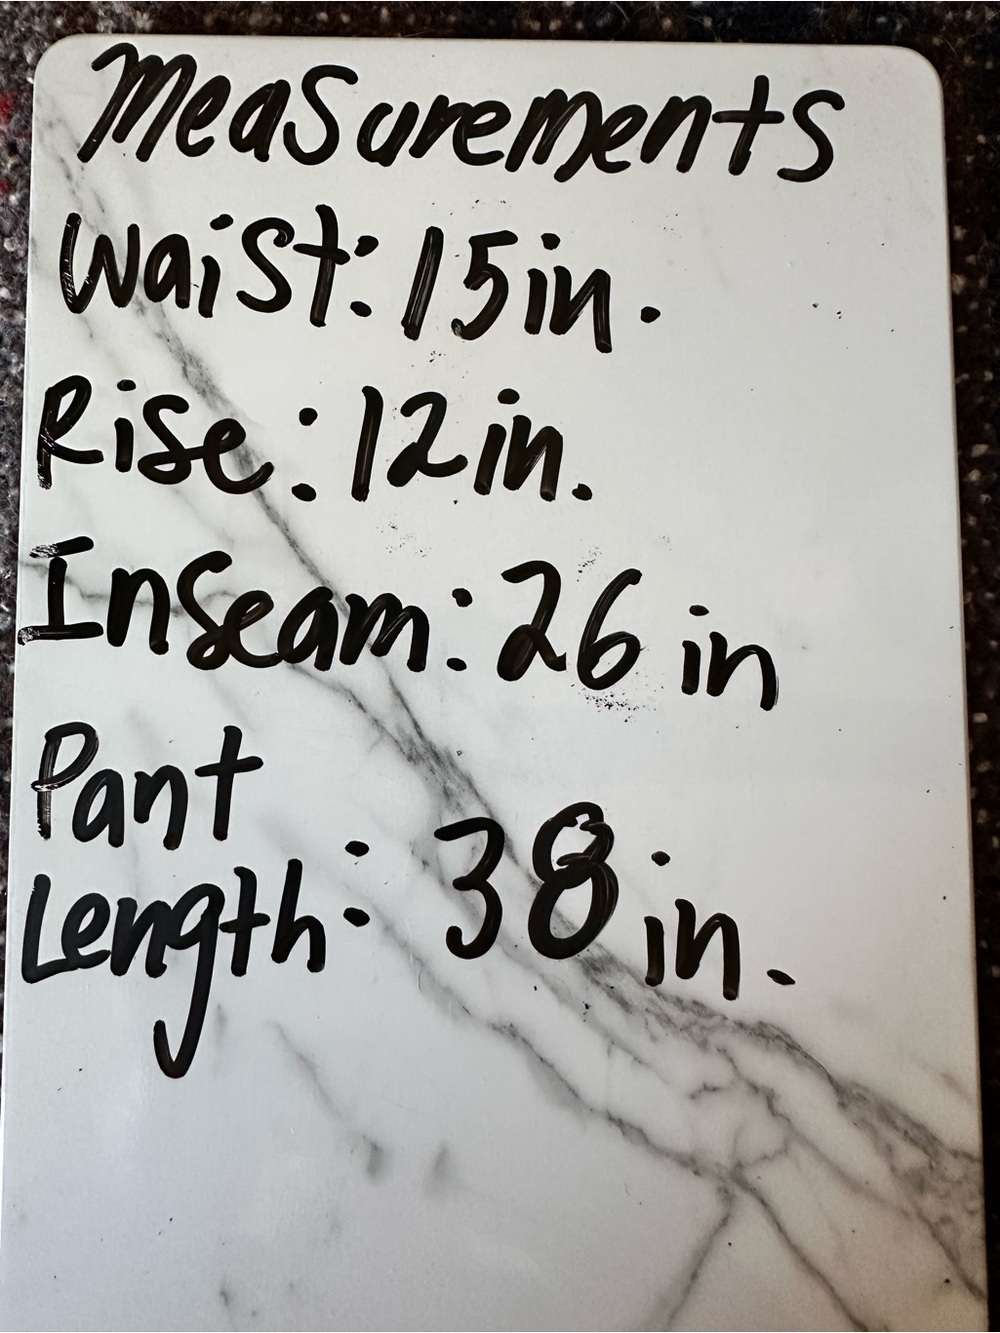 Measurements
Waist: 15in.
Rise: 12in.
Inseam: 26 in
Pant
Length: 38 in.